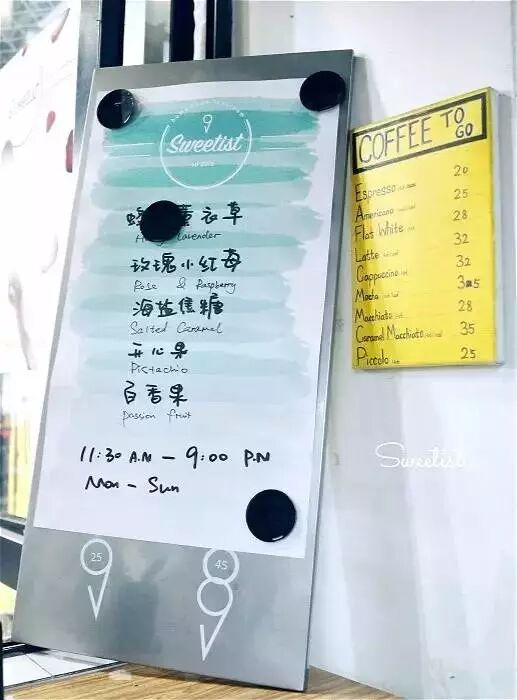 Sweetist
薰衣草
lavender
玫瑰小红莓
Rose & Raspberry
海盐焦糖
Salted Caramel
开心果
Pistachio
百香果
passion fruit
11:30 A.M — 9:00 P.M
Mon - Sun
25
45
COFFEE TO GO
Espresso 20
Americano 25
Flat White 28
Latte 32
Cappuccino 32
Mocha 35
Macchiato 28
Caramel Macchiato 35
Piccolo 25
Sweetist